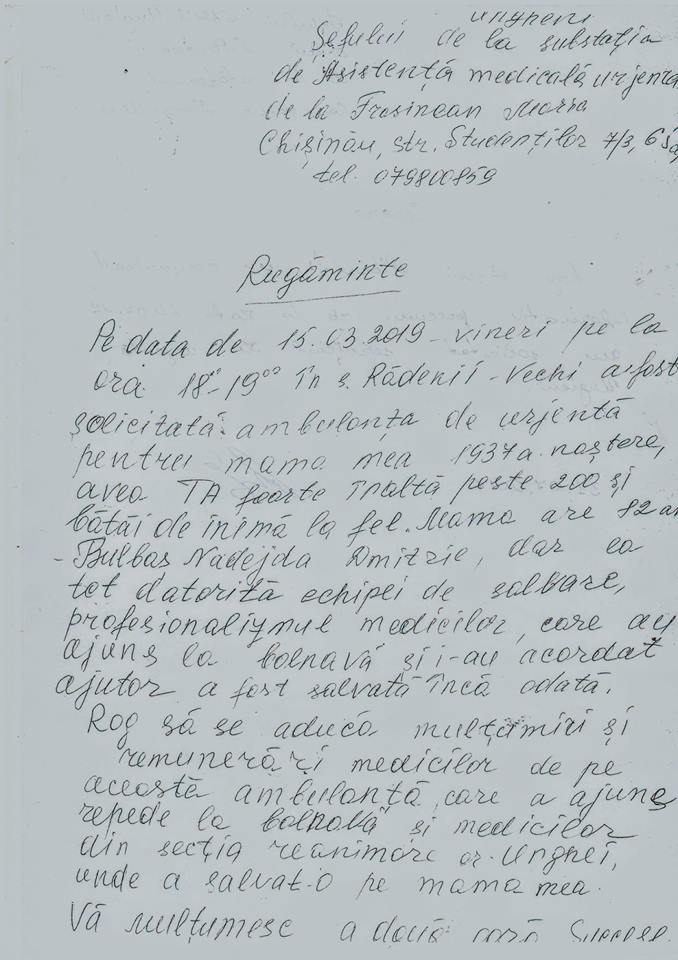 Ungheni
Șefului de la substația
de Asistență medicală urjenta
de la Frosinean Maria
Chișinău, str. Studenților 7/3,
tel. 079800859
Rugăminte
Pe data de 15.03.2019 - vineri pe la
ora 18°°-19°° în s. Rădenii-Vechi a fost
solicitată ambulanța de urjentă
pentru mama mea 1937 a. naștere,
avea TA foarte înaltă peste 200 și
bătăi de inimă la fel. Mama are 82 an
- Bulbaș Nadejda Dmitrie, dar ea
tot datorită echipei de salvare,
profesionalizmul medicilor, care au
ajuns la bolnavă și i-au acordat
ajutor a fost salvată încă odată.
Rog să se aducă mulțămiri și
remunerări medicilor de pe
această ambulanță, care a ajuns
repede la bolnavă și medicilor
din secția reanimare or. Unghei,
unde a salvat-o pe mama mea.
Vă mulțumesc a doua oară